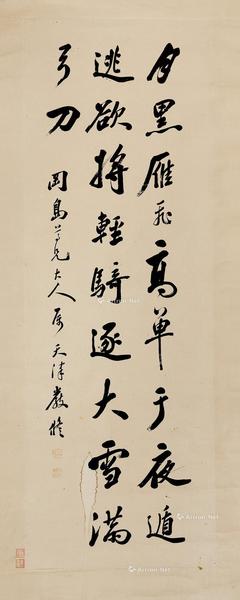 月黑雁飛高單于夜遁
逃欲將輕騎逐大雪滿
弓刀
岡島兄大人属 天津嚴脩